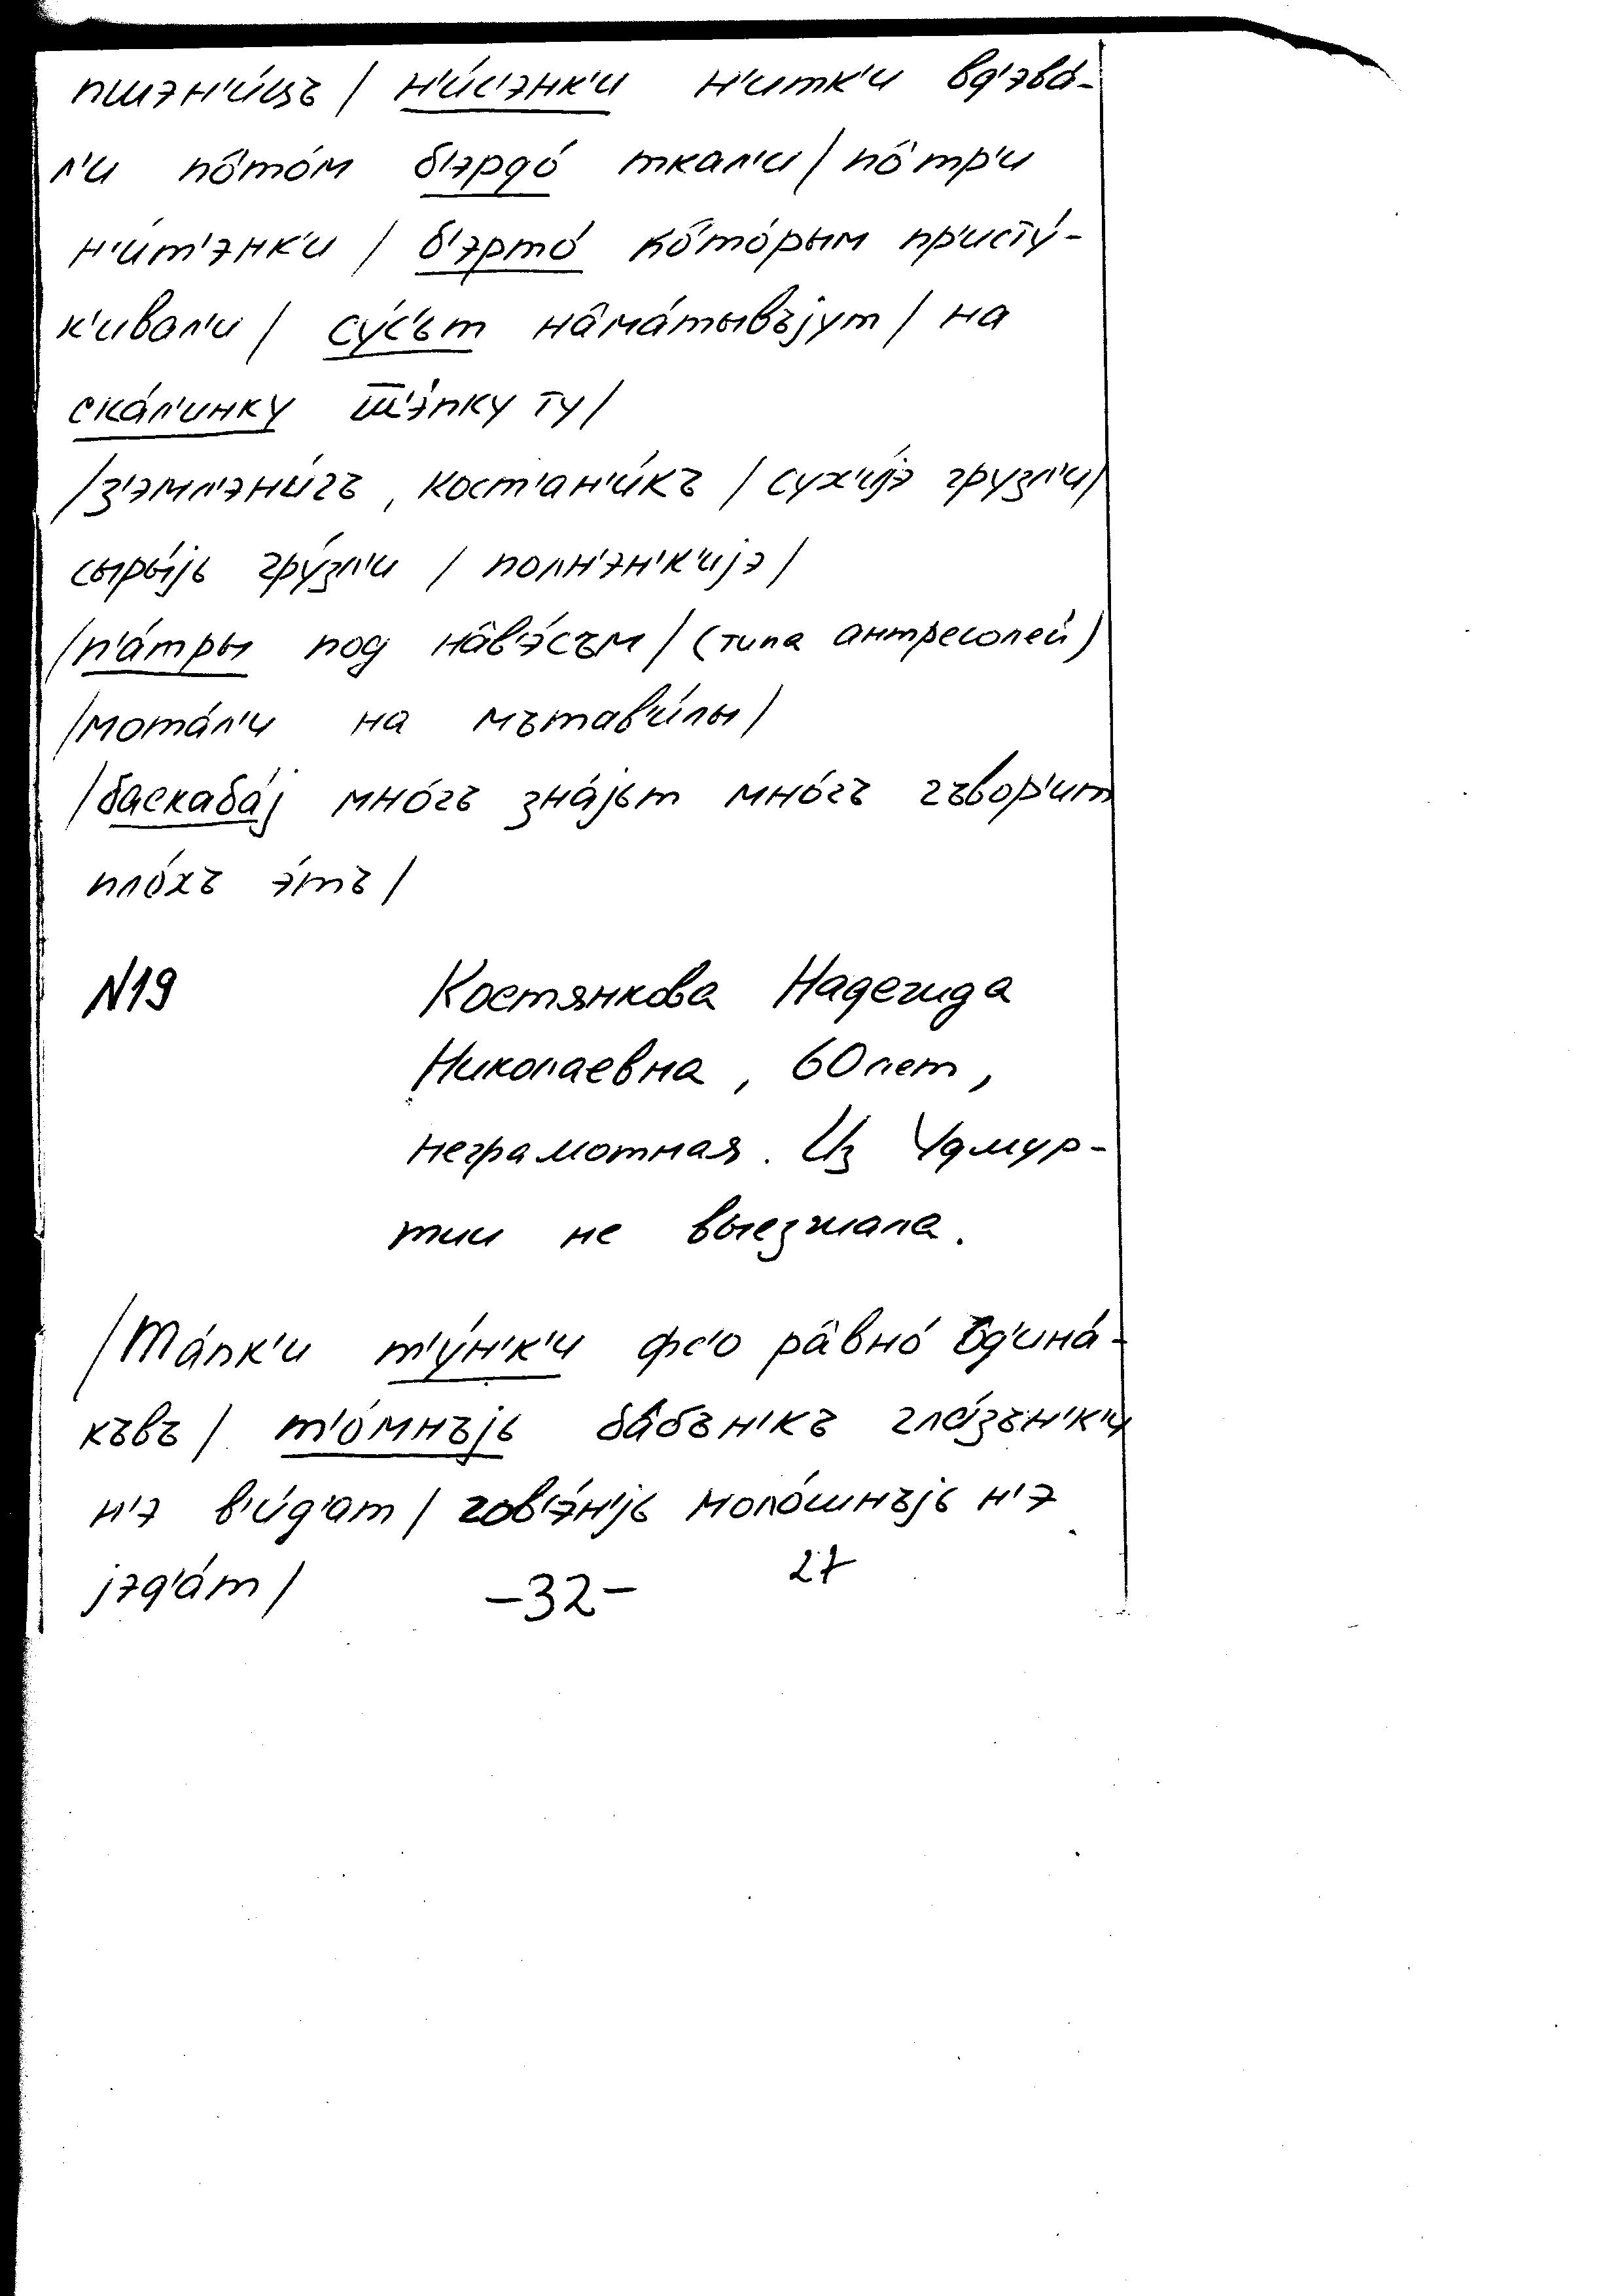 пшэн'и́цъ / н'и́с'энк'и н'итк'и вд'эва́-
л'и по̂то́м б'эрдо́ ткал'и / по̂ тр'и
н'и́т'энк'и / б'эрто́ ко̂то́рым пр'исту́-
к'ивал'и / су́с'ът на̂ма́тывъjут / на
ска́л'инку ш̅'э́пку ту /
/ з'эмл'эни́гъ, кост'ан'и́къ / сух'и́jэ грузл'и /
сыры́jь гру́зл'и / полн'эн'к'иjэ /
/ п'а́тры под на̂в'э́съм / (типа антресолей)
/ мота́л'и на мътав'и́лы /
/ баскаба́j мно́гъ зна́jьт мно́гъ гъвор'ит
пло́хъ э́тъ /
N19 Костянкова Надежда
Николаевна, 60 лет,
неграмотная. Из Удмур-
тии не выезжала.
/ Та́пк'и т'у́н'к'и фс'о ра̂вно́ ъд'ина́-
къвъ / т'о́мнъjь ба́бън'къ гла́зън'к'и
н'э в'и́д'ат / гов'э́н'jь моло́шнъjь н'э
jэд'а́т / -32- 27